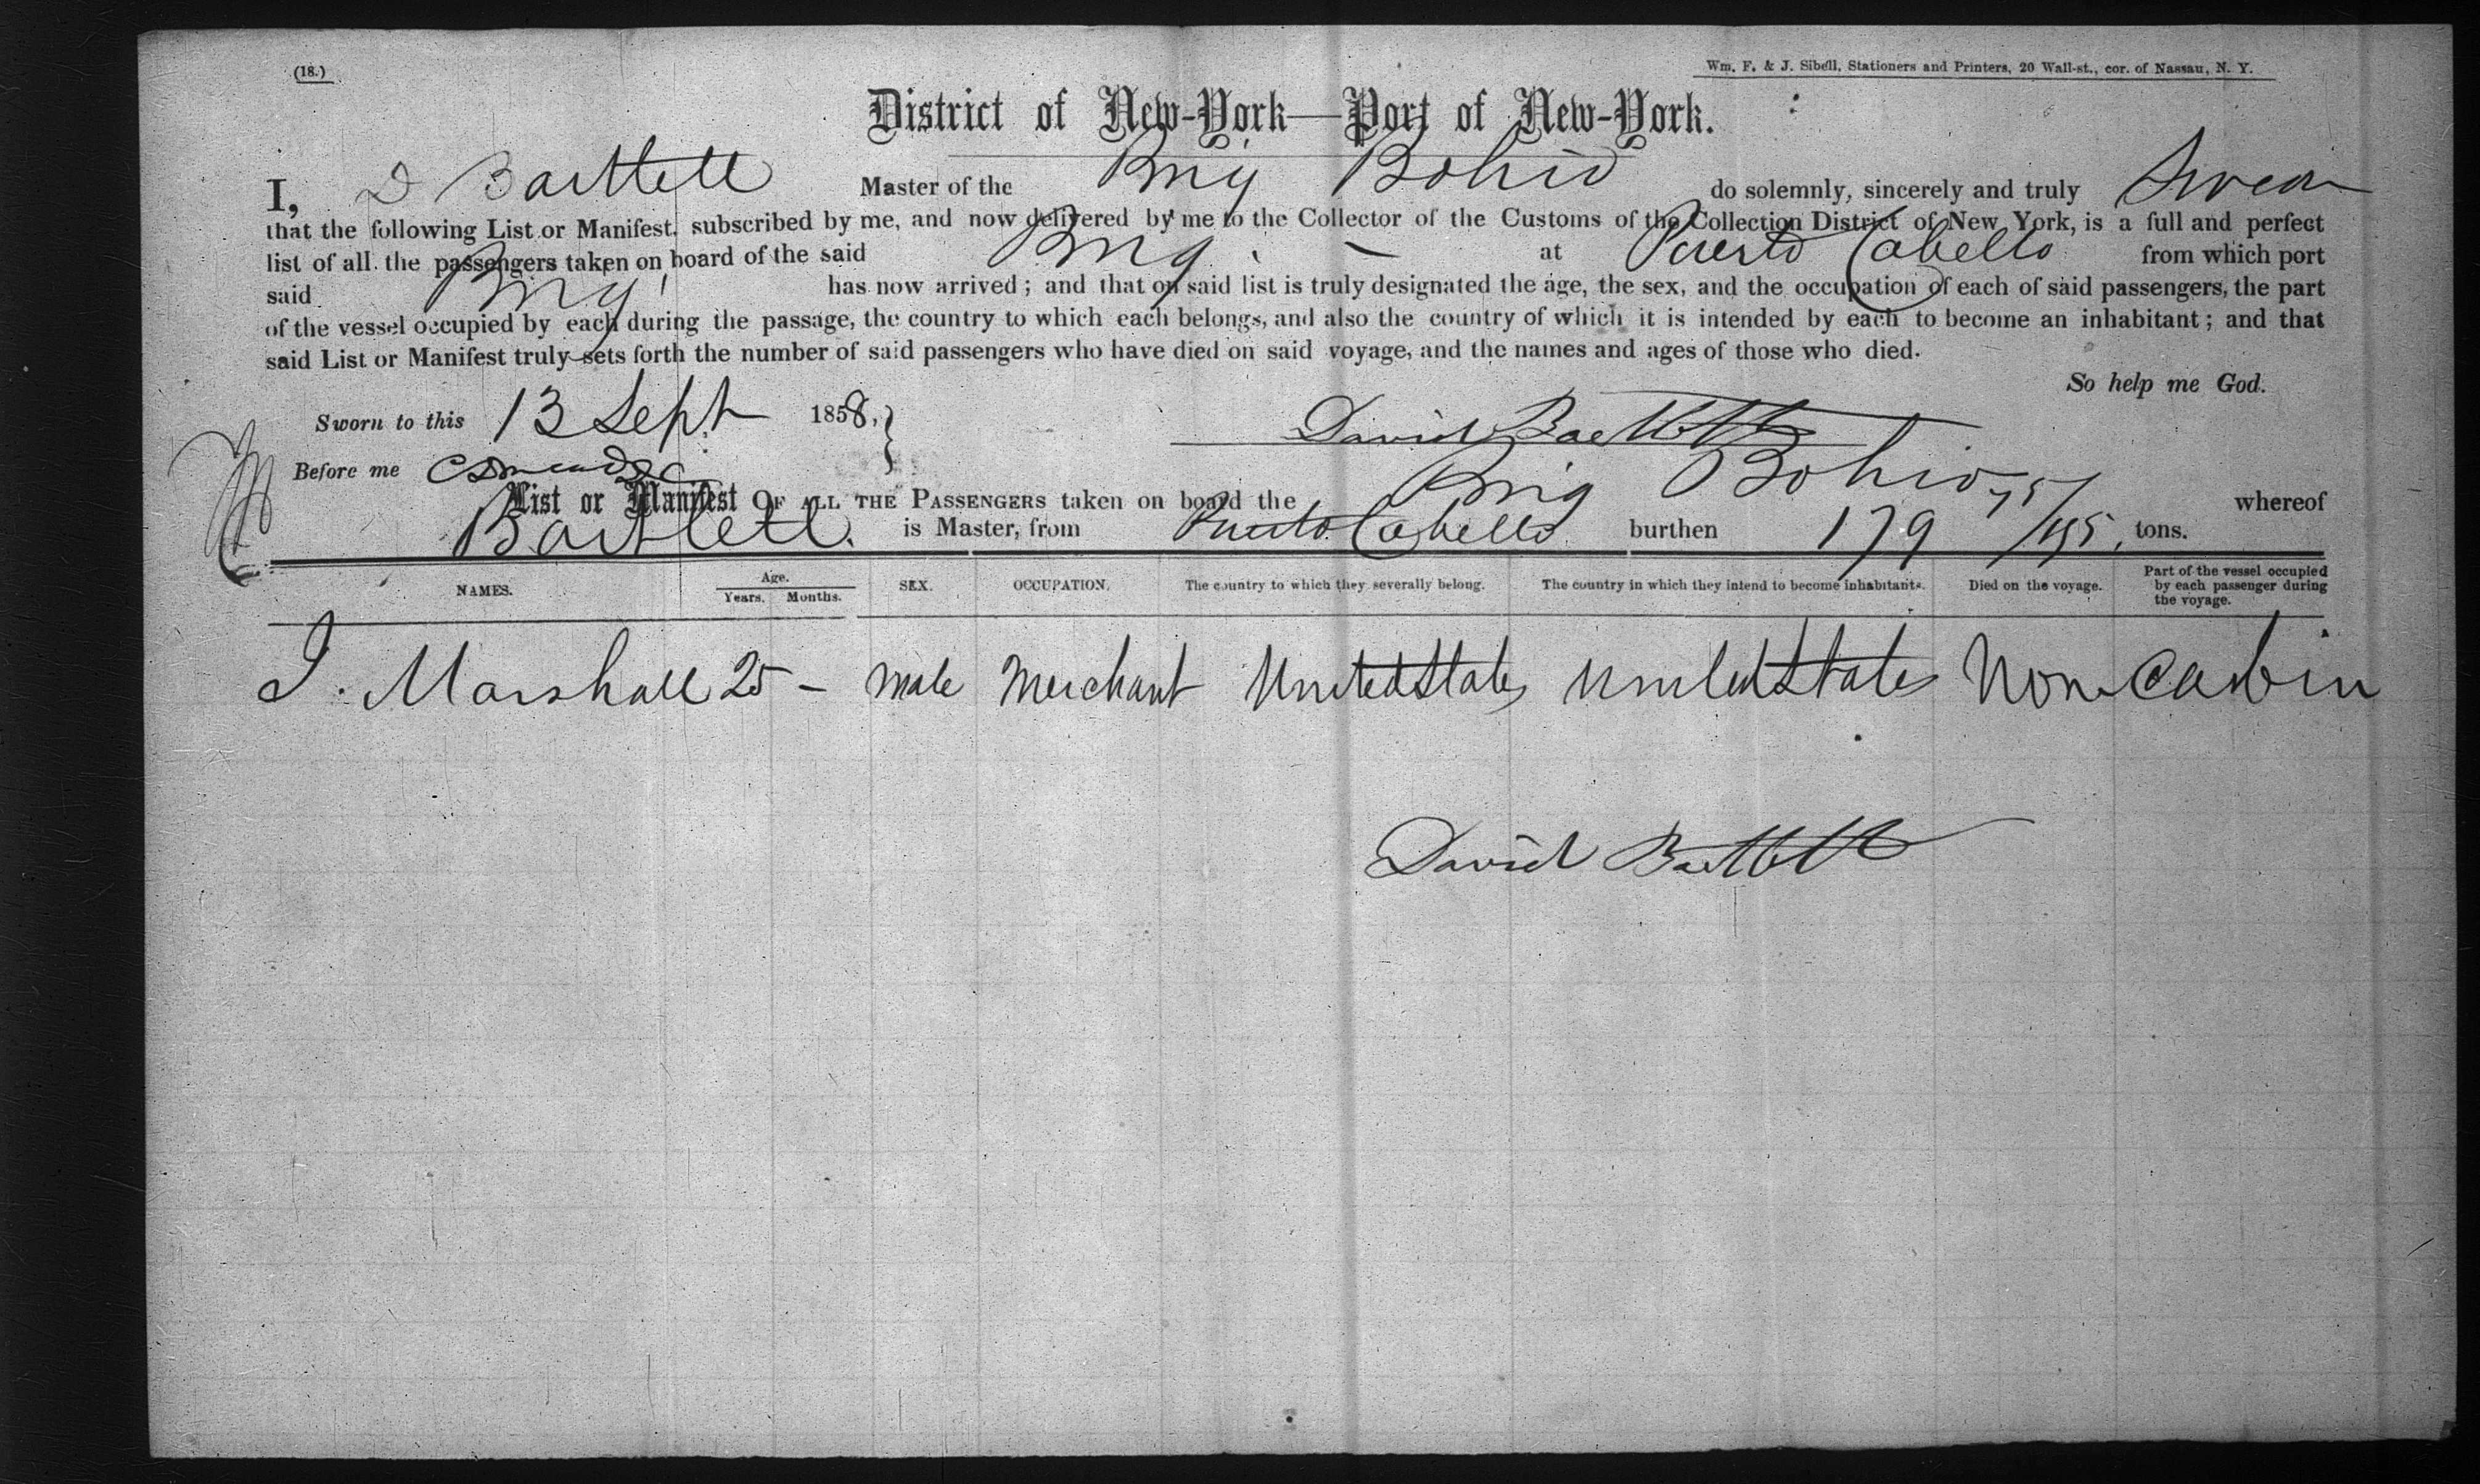 (18.)
Wm. F. & J. Sibell, Stationers and Printers, 20 Wall-st., cor. of Nassau, N. Y.
District of New-York—Port of New-York.
I, D Bartlett Master of the Brig Bohio do solemnly, sincerely and truly Swear
that the following List or Manifest, subscribed by me, and now delivered by me to the Collector of the Customs of the Collection District of New York, is a full and perfect
list of all the passengers taken on board of the said Brig at Puerto Cabello from which port
said Brig has now arrived; and that on said list is truly designated the age, the sex, and the occupation of each of said passengers, the part
of the vessel occupied by each during the passage, the country to which each belongs, and also the country of which it is intended by each to become an inhabitant; and that
said List or Manifest truly sets forth the number of said passengers who have died on said voyage, and the names and ages of those who died.
So help me God.
Sworn to this 13 Sept 1858,
David Bartlett
Before me
List or Manifest OF ALL THE PASSENGERS taken on board the Brig Bohio whereof
Bartlett is Master, from Puerto Cabello burthen 179 75/95, tons.
NAMES. Age. Years. Months. SEX. OCCUPATION. The country to which they severally belong. The country in which they intend to become inhabitants. Died on the voyage. Part of the vessel occupied by each passenger during the voyage.
J. Marshall 25 - male Merchant United States United States Non Cabin
David Bartlett